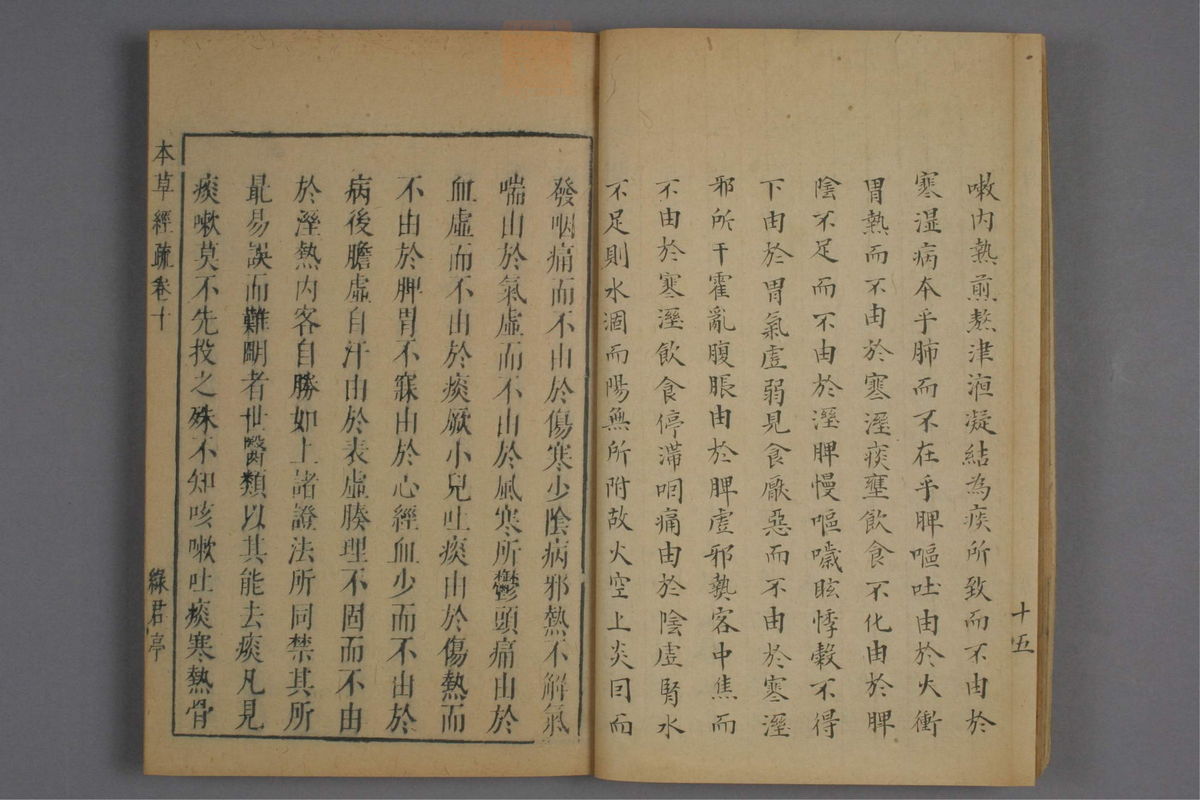 嗽内熱煎熬津液凝結為痰所致而不由於
寒湿病本乎肺而不在乎脾嘔吐由於火衝
胃熱而不由於寒溼痰壅飲食不化由於脾
陰不足而不由於溼脾慢嘔噦眩悸穀不得
下由於胃氣虛弱見食厭惡而不由於寒溼
邪所干霍亂腹脹由於脾虛邪熱客中焦而
不由於寒溼飲食停滯咽痛由於陰虛腎水
不足則水涸而陽無所附故火空上炎因而
十五
發咽痛而不由於傷寒少陰病邪熱不解氣
喘由於氣虛而不由於風寒所鬱頭痛由於
血虛而不由於痰厥小兒吐痰由於傷熱而
不由於脾胃不寐由於心經血少而不由於
病後膽虛自汗由於表虛腠理不固而不由
於溼熱內客自勝如上諸證法所同禁其所
最易誤而難明者世醫類以其能去痰凡見
痰嗽莫不先投之殊不知咳嗽吐痰寒熱骨
本草經疏卷十
綠君亭